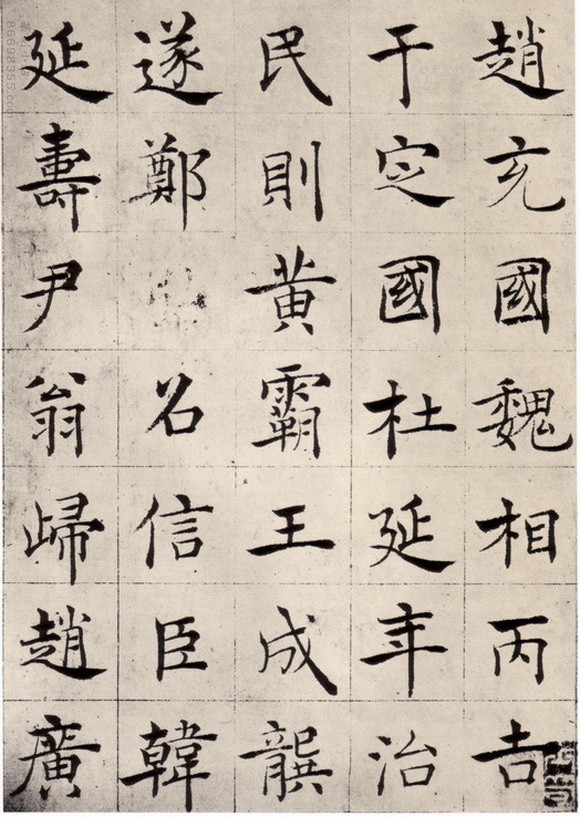 趙充國魏相丙吉
于定國杜延年治
民則黃霸王成龔
遂鄭召信臣韓
延壽尹翁歸趙廣